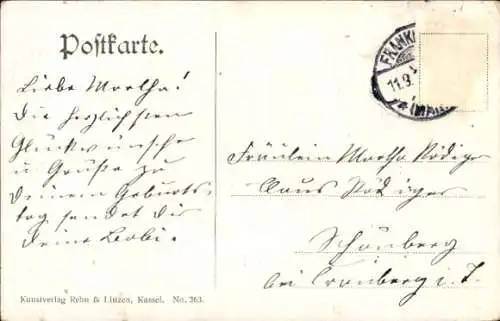 Postkarte.
Liebe Martha!
Die herzlichsten
Glückwünsche
u Grüße zu
Deinem Geburts-
tag sendet Dir
Deine Bobi.
Fräulein Martha Rödiger
Claus Rödiger
Schönberg
bei Cronberg i. T.
FRANKF
11.9.
(MAIN)
Kunstverlag Rehn & Linzen, Kassel. No. 363.